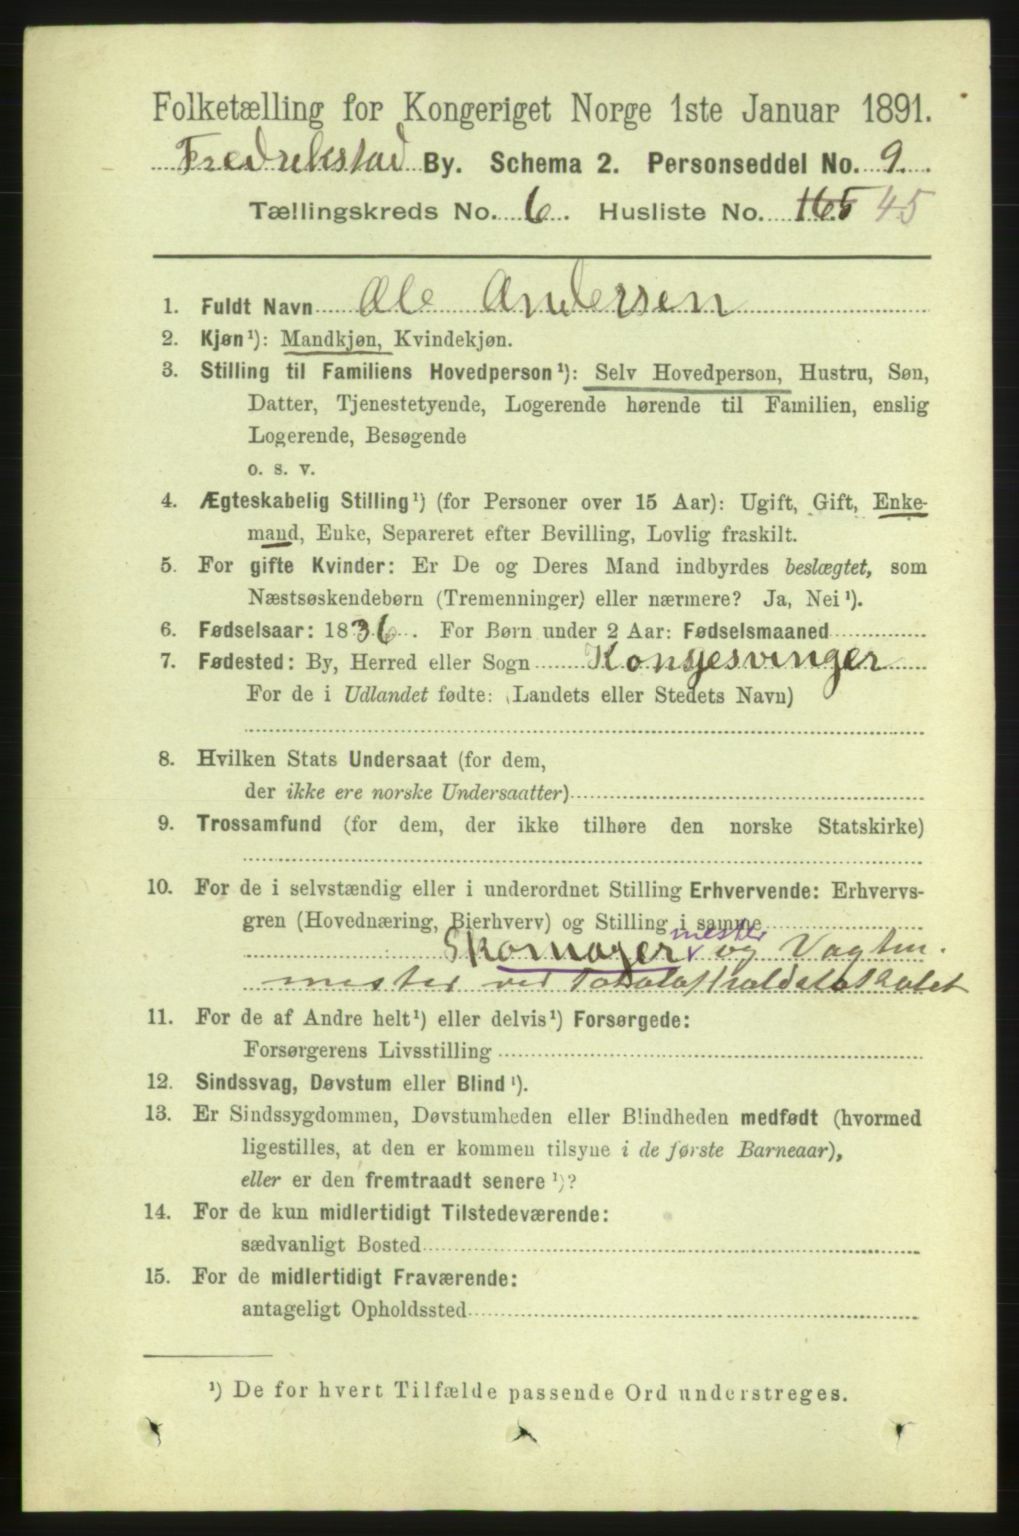 Folketælling for Kongeriget Norge 1ste Januar 1891.
Fredrikstad By. Schema 2. Personseddel No. 9.
Tællingskreds No. 6. Husliste No. 165 45
1. Fuldt Navn Ole Andersen
2. Kjøn¹): Mandkjøn, Kvindekjøn.
3. Stilling til Familiens Hovedperson¹): Selv Hovedperson, Hustru, Søn,
Datter, Tjenestetyende, Logerende hørende til Familien, enslig
Logerende, Besøgende
o. s. v.
4. Ægteskabelig Stilling¹) (for Personer over 15 Aar): Ugift, Gift, Enke-
mand, Enke, Separeret efter Bevilling, Lovlig fraskilt.
5. For gifte Kvinder: Er De og Deres Mand indbyrdes beslægtet, som
Næstsøskendebørn (Tremenninger) eller nærmere? Ja, Nei¹).
6. Fødselsaar: 1836. For Børn under 2 Aar: Fødselsmaaned
7. Fødested: By, Herred eller Sogn Kongesvinger
For de i Udlandet fødte: (Landets eller Stedets Navn)
8. Hvilken Stats Undersaat (for dem,
der ikke ere norske Undersaatter)
9. Trossamfund (for dem, der ikke tilhøre den norske Statskirke)
10. For de i selvstændig eller i underordnet Stilling Erhvervende: Erhvervs-
gren (Hovednæring, Bierhverv) og Stilling i samme
mester
Skomager og Vagtm.
mester ved
11. For de af Andre helt¹) eller delvis¹) Forsørgede:
Forsørgerens Livsstilling
12. Sindssvag, Døvstum eller Blind¹).
13. Er Sindssygdommen, Døvstumheden eller Blindheden medfødt (hvormed
ligestilles, at den er kommen tilsyne i de første Barneaar),
eller er den fremtraadt senere¹)?
14. For de kun midlertidigt Tilstedeværende:
sædvanligt Bosted
15. For de midlertidigt Fraværende:
antageligt Opholdssted
¹) De for hvert Tilfælde passende Ord understreges.